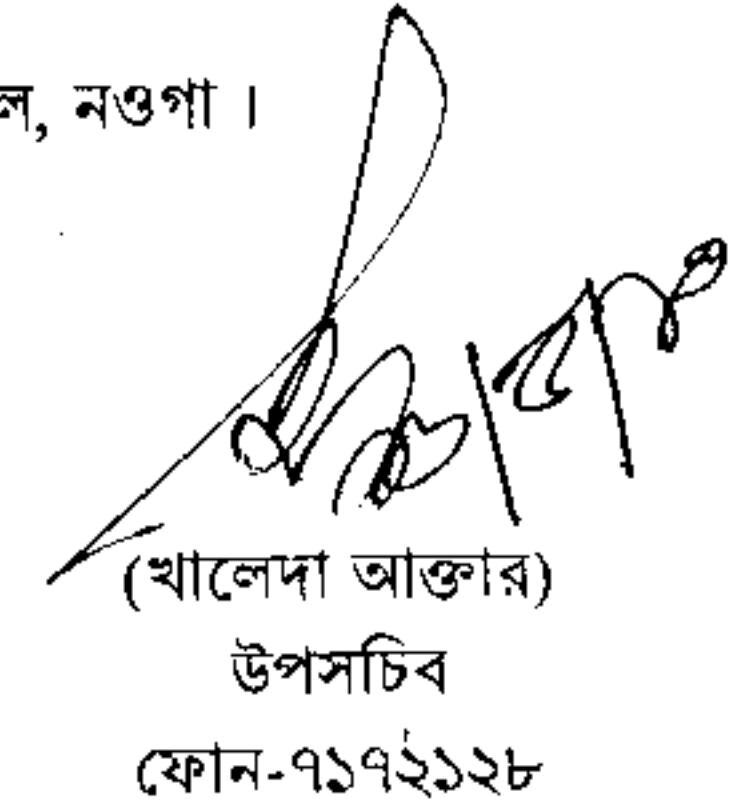 ল, নওগা ।
(খালেদা আক্তার)
উপসচিব
ফোন-৭১৭২১২৮